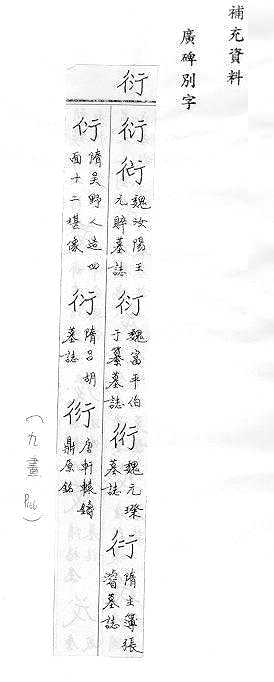 補充資料
廣碑別字
衍
衍
衍 魏汝陽王元賥墓誌
衍 魏富平伯于纂墓誌
衍 魏元璨墓誌
衍 隋主簿張濬墓誌
衍 隋吴野人造四面十二堪像
衍 隋呂胡墓誌
衍 唐軒轅鑄鼎原銘
(九畫)